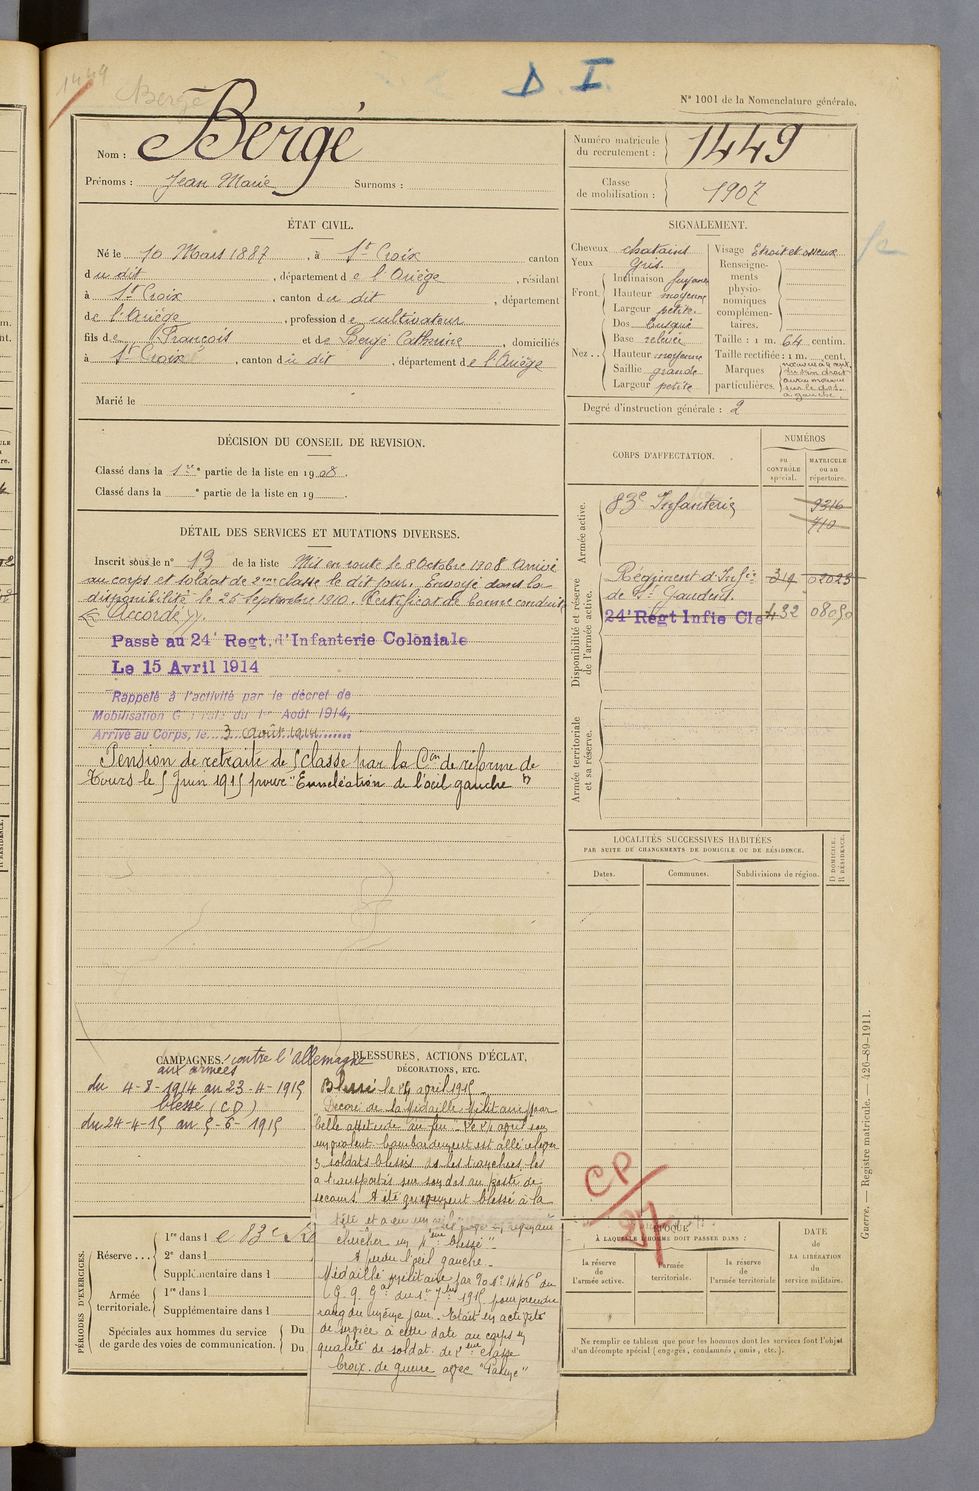 1449
Bergé
D. I.
N° 1001 de la Nomenclature générale.
Nom : Bergé
Prénoms : Jean Marie Surnoms :
Numéro matricule du recrutement : 1449
Classe de mobilisation : 1907
ÉTAT CIVIL.
Né le 10 Mars 1887, à St Croix canton
du dit, département de l'Ariège, résidant
à St Croix, canton du dit, département
de l'Ariège, profession de cultivateur
fils de François et de Bergé Catherine, domiciliés
à St Croix, canton du dit, département de l'Ariège
Marié le
SIGNALEMENT.
Cheveux chatains
Yeux gris.
Front. Inclinaison fuyante
Hauteur moyenne
Largeur petite.
Nez.. Dos busqué
Base relevée
Hauteur moyenne
Saillie grande
Largeur petite
Visage Etroit et osseux
Renseignements physionomiques complémentaires.
Taille : 1 m. 64 centim.
Taille rectifiée : 1 m. cent.
Marques particulières.
sur le dos
à gauche.
Degré d'instruction générale : 2
DÉCISION DU CONSEIL DE REVISION.
Classé dans la 1re partie de la liste en 1908.
Classé dans la e partie de la liste en 19 .
DÉTAIL DES SERVICES ET MUTATIONS DIVERSES.
Inscrit sous le n° 13 de la liste Mis en route le 8 Octobre 1908 Arrivé
au corps et soldat de 2eme classe le dit jour. Envoyé dans la
disponibilité le 25 Septembre 1910. Certificat de bonne conduite
« Accordé ».
Passé au 24e Regt. d'Infanterie Coloniale
Le 15 Avril 1914
Rappelé à l'activité par le décret de
Mobilisation G du 1er Août 1914,
Arrivé au Corps, le 3 Août 1914
Pension de retraite de 5 classe par la Con de réforme de
Tours le 5 Juin 1915 pour "Enucléation de l'œil gauche"
CORPS D'AFFECTATION.
NUMÉROS
au CONTRÔLE spécial.
MATRICULE ou au répertoire.
Armée active.
83e Infanterie
9316
710
Disponibilité et réserve de l'armée active.
Régiment d'Infie 314 02023
de St Gaudens.
24e Regt Infie Cle 432 08050
Armée territoriale et sa réserve.
LOCALITÉS SUCCESSIVES HABITÉES
PAR SUITE DE CHANGEMENTS DE DOMICILE OU DE RÉSIDENCE.
Dates.
Communes.
Subdivisions de région.
D DOMICILE.
R RÉSIDENCE.
CAMPAGNES. contre l'Allemagne
aux armées
du 4-8-1914 au 23-4-1915
blessé (CD)
du 24-4-15 au 5-6-1915
BLESSURES, ACTIONS D'ÉCLAT,
DÉCORATIONS, ETC.
Blessé le 24 avril 1915
Décoré de la Médaille Militaire pour
belle attitude au feu. Le 24 avril sous
un violent bombardement est allé relever
3 soldats blessés les tranchées, les
a transportés sur son dos au poste de
secours. A été grièvement blessé à la
tête et a eu un œil
chercher un 4eme blessé".
A perdu l'œil gauche.
Médaille militaire par
G. Q. G. du 1915 pour prendre
rang du même jour. Etait en activité
de service à cette date au corps en
qualité de soldat de 2eme classe
Croix de guerre avec "Palme"
PÉRIODES D'EXERCICES.
Réserve... 1re dans le 83e
2e dans l
Supplémentaire dans l
Armée territoriale. 1re dans l
Supplémentaire dans l
Spéciales aux hommes du service de garde des voies de communication. Du
Du
CP/27
ÉPOQUE
À LAQUELLE L'HOMME DOIT PASSER DANS :
la réserve de l'armée active.
l'armée territoriale.
la réserve de l'armée territoriale
DATE de LA LIBÉRATION du service militaire.
Ne remplir ce tableau que pour les hommes dont les services font l'objet
d'un décompte spécial (engagés, condamnés, omis, etc.).
Guerre. — Registre matricule. — 426-89-1911.